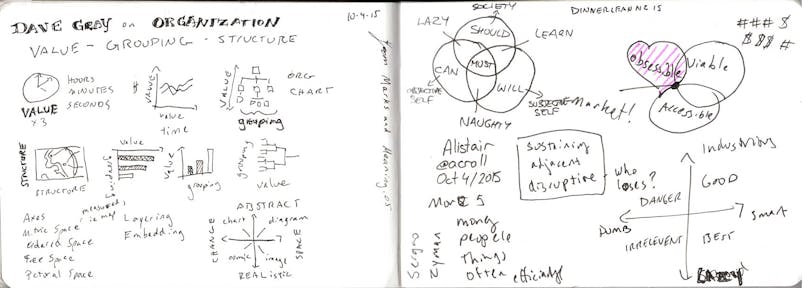 DAVE GRAY on ORGANIZATION
10-4-15
VALUE - GROUPING - STRUCTURE
from Marks and Meaning, 05
HOURS
MINUTES
SECONDS
VALUE
x3
$
VALUE
value
time
VALUE
ORG
CHART
grouping
STRUCTURE
STRUCTURE
value
value
grouping
grouping
value
Axes
Metric Space
Ordered Space
Free Space
Pictoral Space
measured,
i.e. map
Layering
Embedding
ABSTRACT
chart
diagram
CHANGE
SPACE
comic
image
REALISTIC
SOCIETY
LAZY
SHOULD
LEARN
MUST
CAN
WILL
OBJECTIVE
SELF
SELF
NAUGHTY
DINNERLEARNING 15
# # # $
$ $ $ #
obsessible
Viable
Accessible
Market!
Alistair
@acroll
Oct 4/2015
sustaining
adjacent
disruptive
who
loses?
More $
money
people
things
often
efficiency
Sergio
Zyman
Industrious
DANGER
GOOD
DUMB
smart
IRRELEVENT
BEST